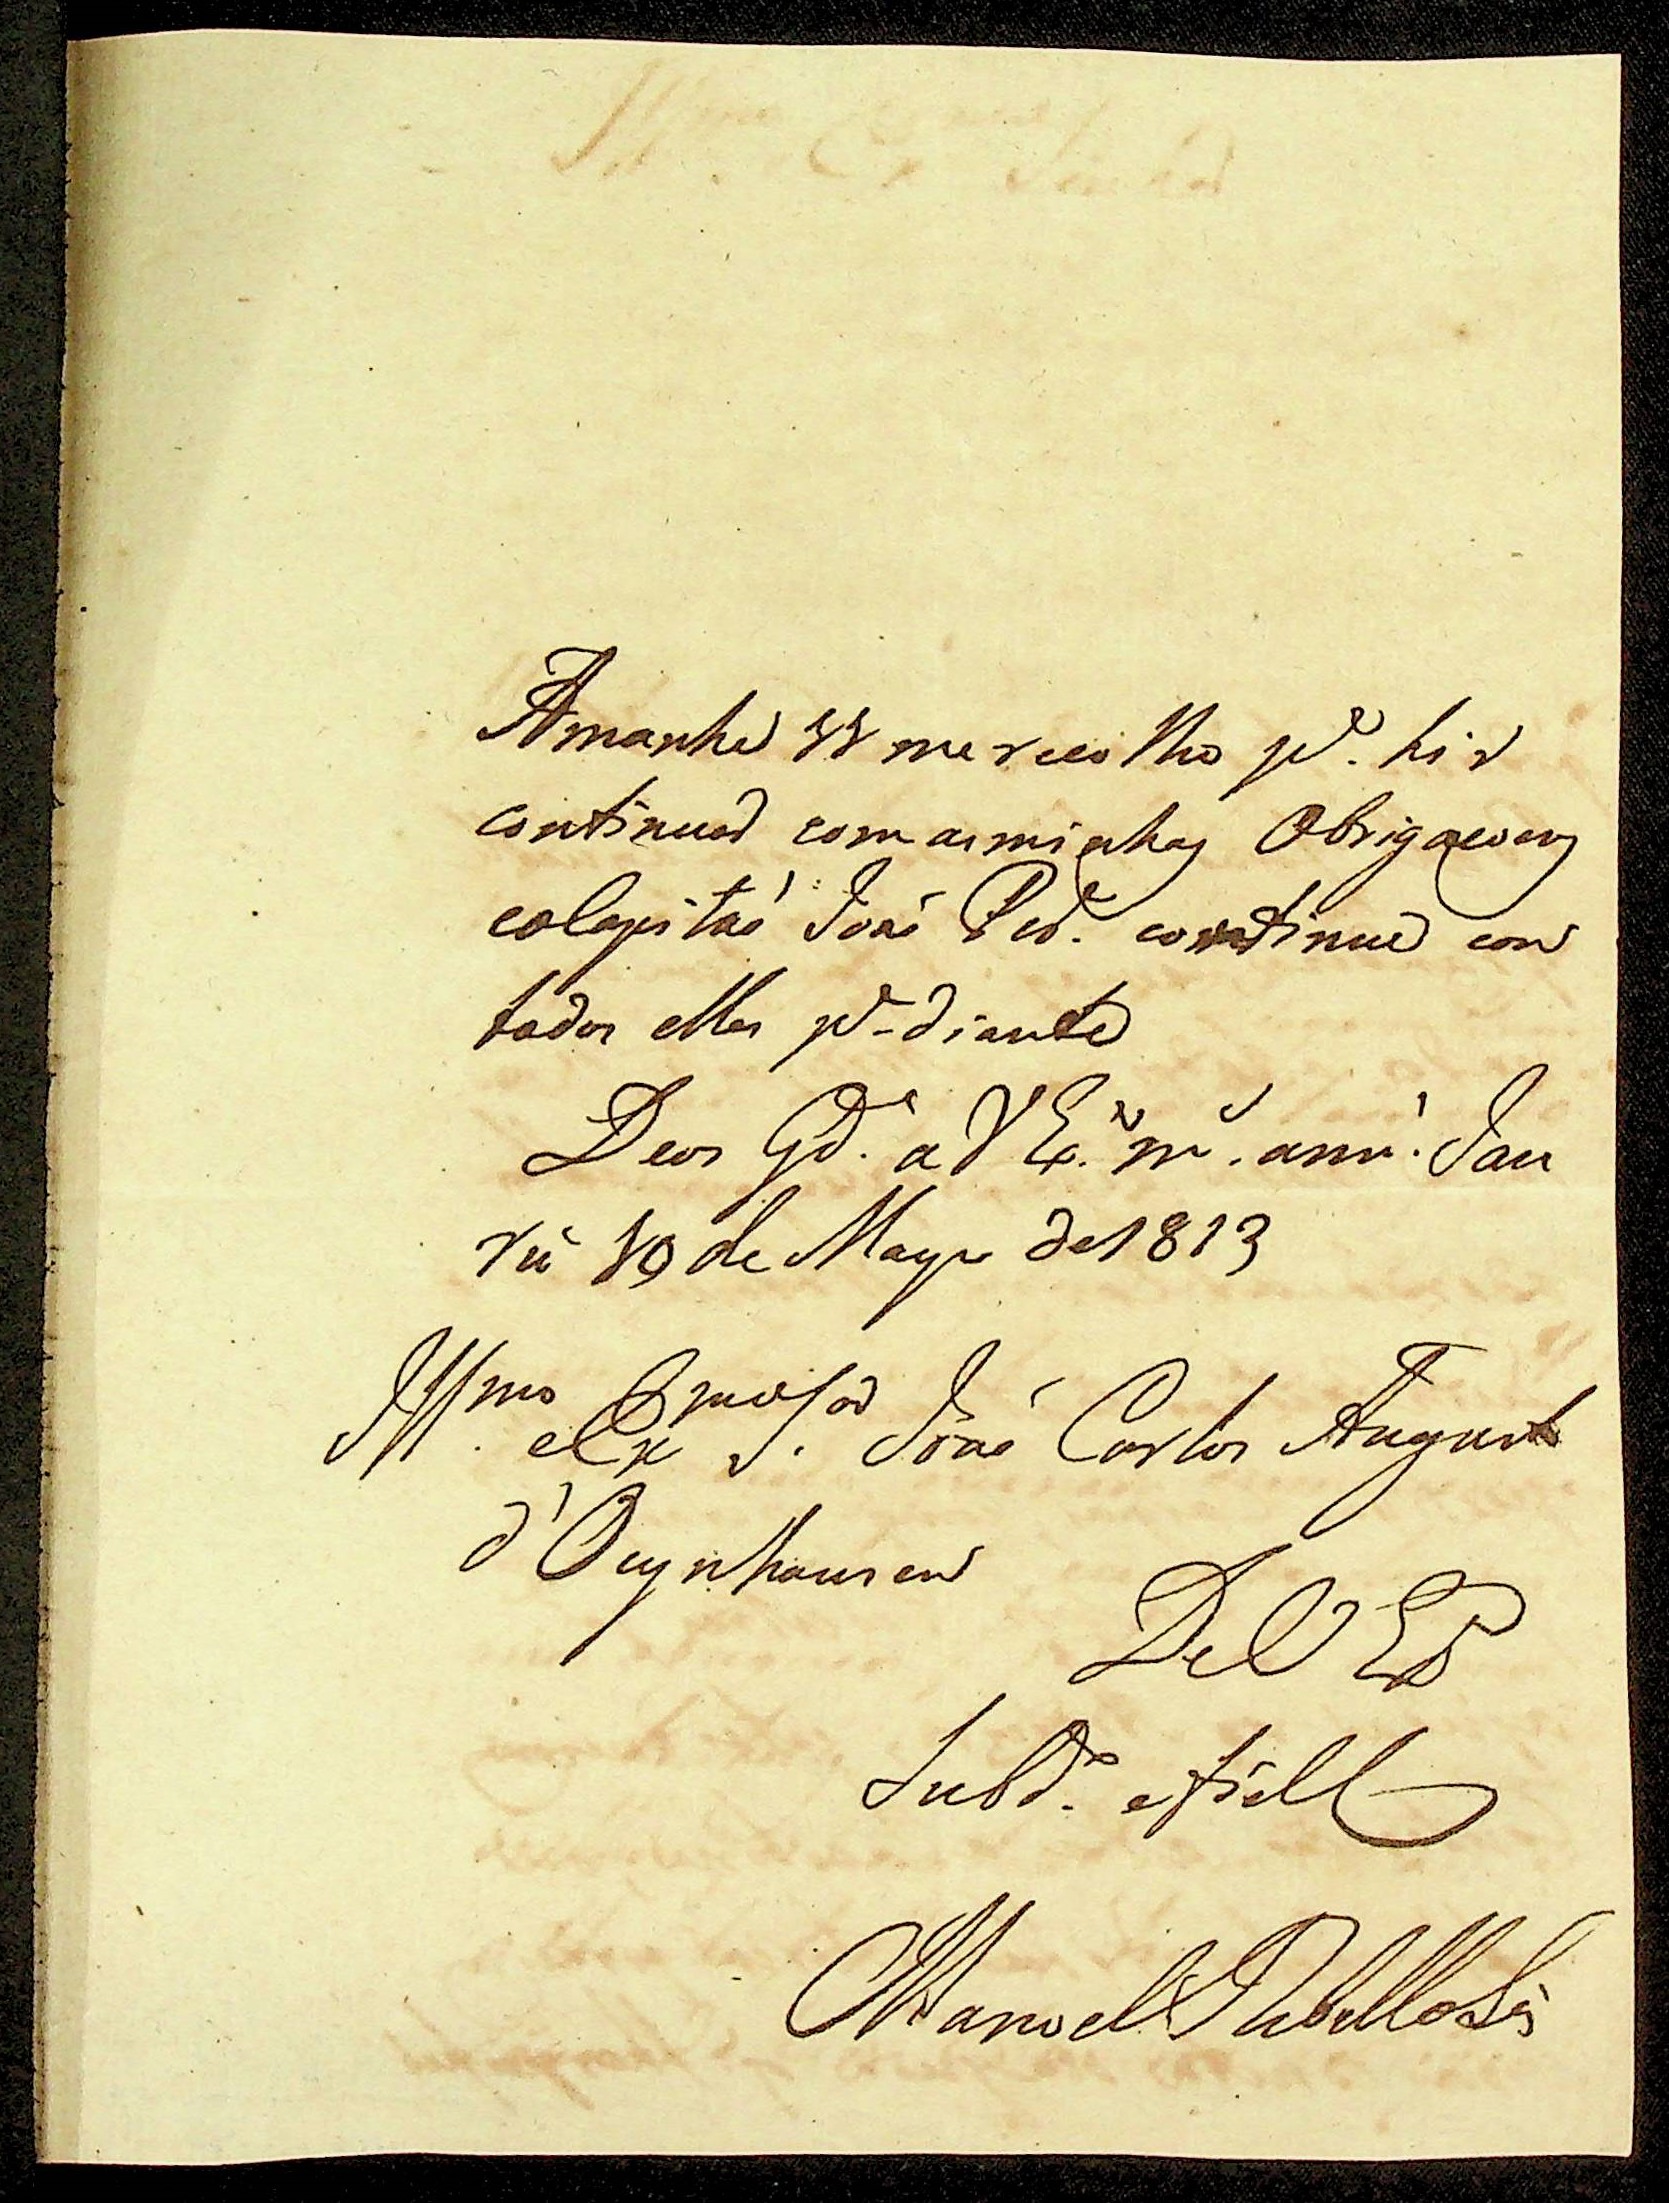 Amanhe 11 me recolho pª. hir
continuar com as minhas Obrigacoens
eoCapitaó Joaó Pedº. continue com
todos elles pª diante
Deos Gdᵉ. a V Exª. mˢ. annˢ. Jau
rú 10 de Mayo de 1813
Illmo e Exmo Sor. Joaó Carlos August
d'Oeynhausen
De V Eˣ
Subdº. e fiell
Manoel Rebello Lˢ